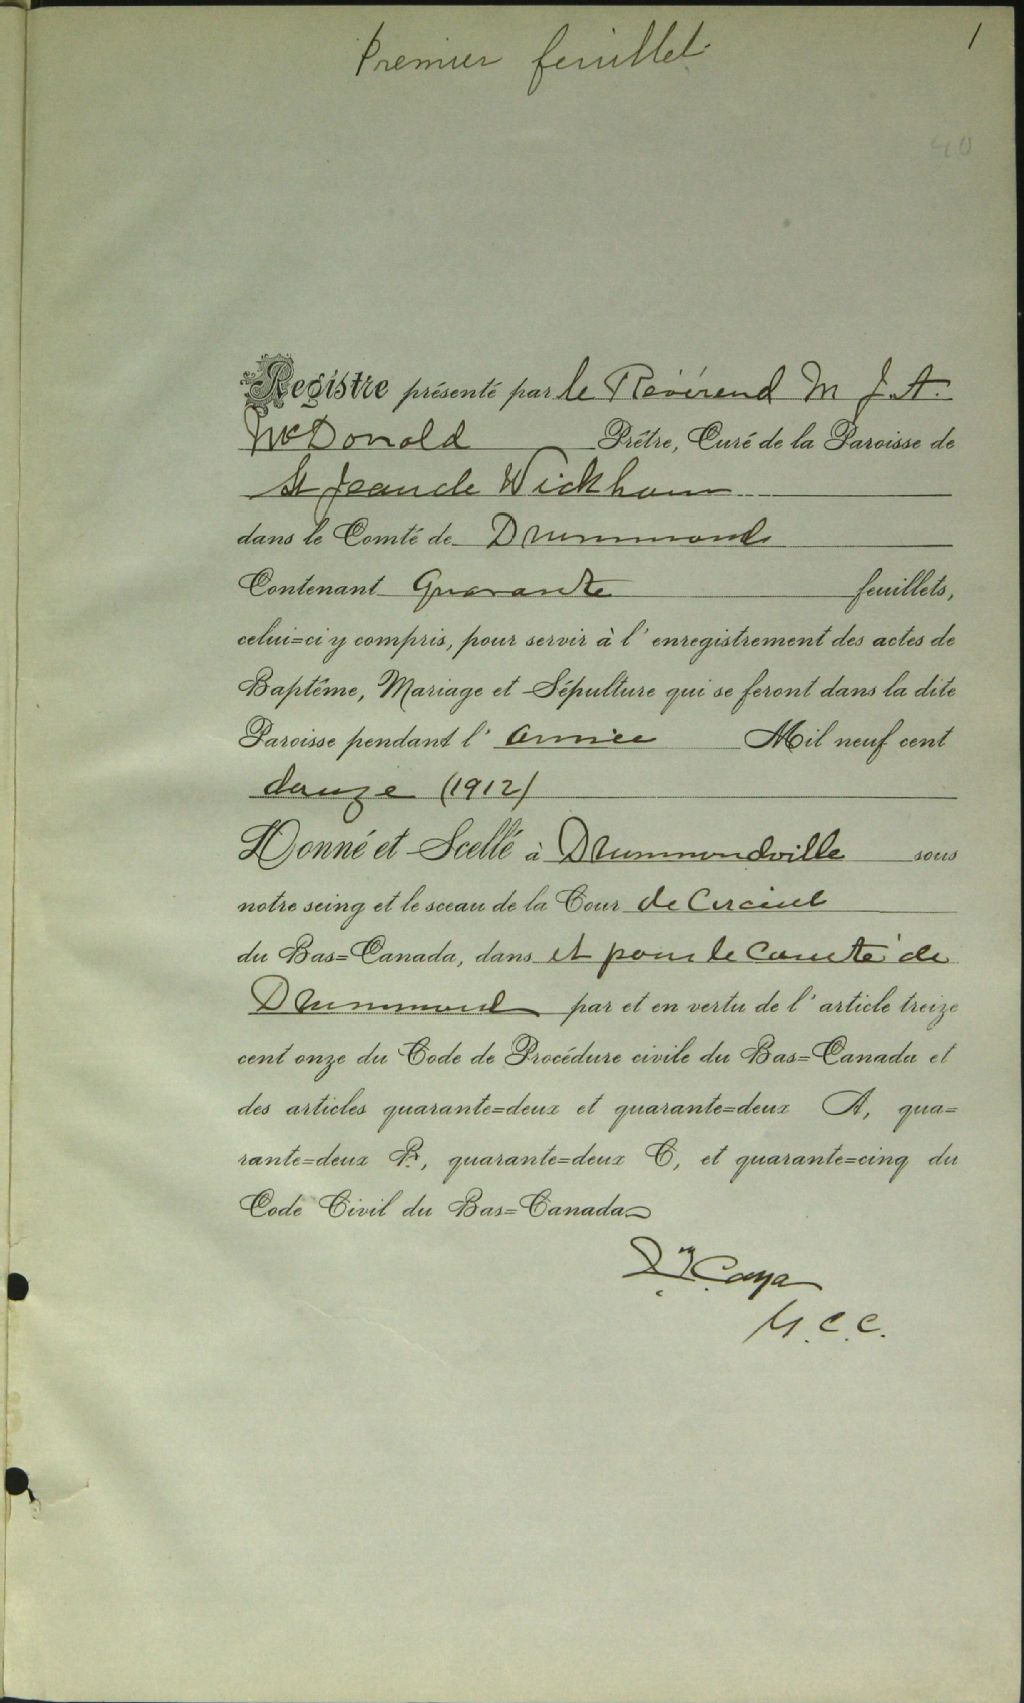 Premier feuillet
1
40
Registre présenté par le Révérend M J. A.
McDonald Prêtre, Curé de la Paroisse de
St Jean de Wickham
dans le Comté de Drummond
Contenant Quarante feuillets,
celui=ci y compris, pour servir à l'enregistrement des actes de
Baptême, Mariage et Sépulture qui se feront dans la dite
Paroisse pendant l'année Mil neuf cent
douze (1912)
Donné et Scellé à Drummondville sous
notre seing et le sceau de la Cour de Circuit
du Bas=Canada, dans et pour le Comté de
Drummond par et en vertu de l'article treize
cent onze du Code de Procédure civile du Bas=Canada et
des articles quarante=deux et quarante=deux A, qua=
rante=deux B, quarante=deux C, et quarante=cinq du
Code Civil du Bas=Canada
Caya
C. C.